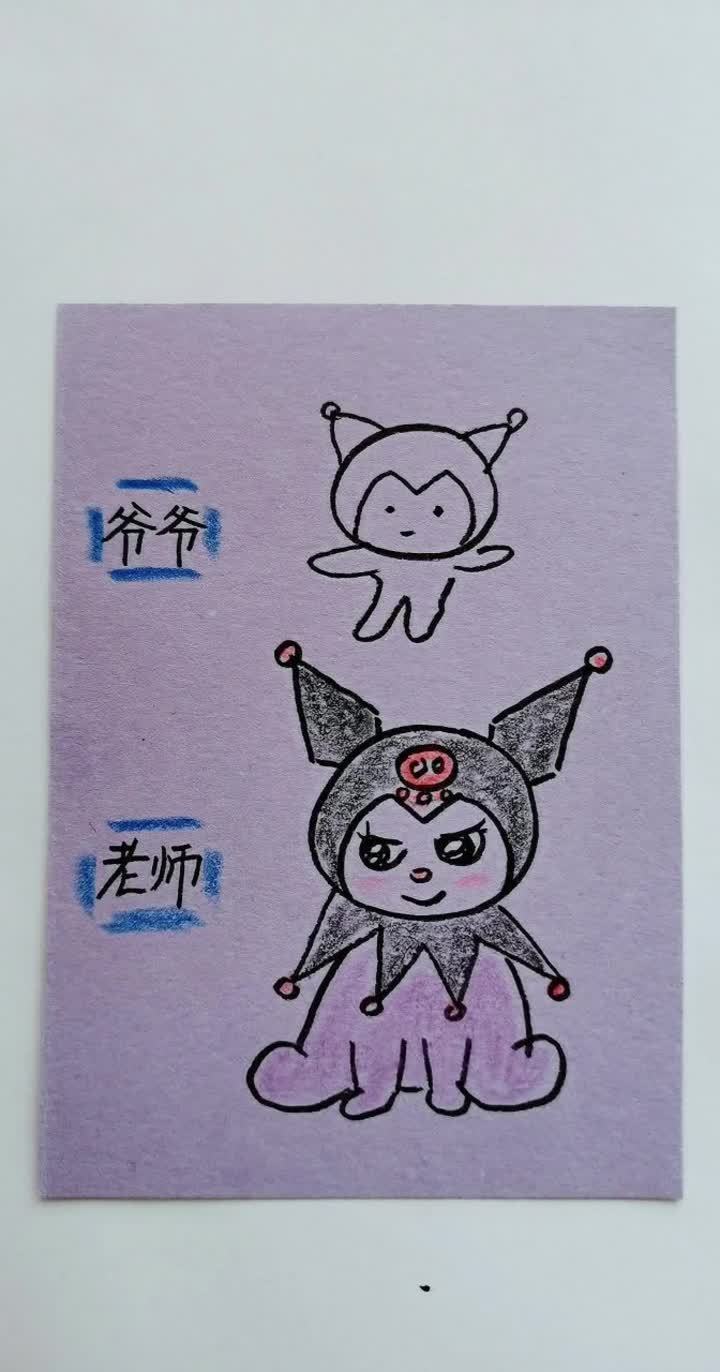 爷爷
老师